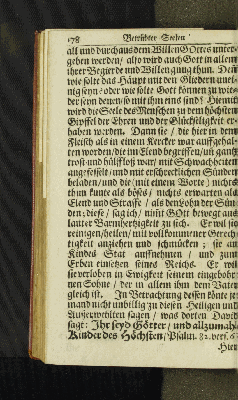 178 Betrübter Seelen
all und durchaus dem Willen Gottes unter-
geben werden/ also wird auch Gott in allem
ihrer Begierde und Willen gnug thun. Den
wie solte das Haupt mit den Gliedern unei-
nig seyn/ oder wie solte Gott können zu wi-
der seyn denen/ so mit ihm eins sind? Hiemit
wird die Seele des Menschen zu dem höchsten
Gipffel der Ehren und der Glückseligkeit er-
haben worden. Dann sie/ die hier in dem
Fleisch als in einem Kercker war auffgehal-
ten worden/ die im Elend begriffen/ und gantz
trost- und hülffloß war/ mit Schwachheiten
angefesselt/ und mit erschrecklichen Sünden
beladen/ und die (mit einem Worte) nichts
thun kunte als böses/ nichts erwarten als
Elend und Straffe/ als den Lohn der Sün-
den; diese/ sag ich/ nimt Gott bewegt aus
lauter Barmhertzigkeit zu sich. Er wil sie
reinigen/ heilen/ mit vollkommener Gerech-
tigkeit anziehen und schmücken; sie an
Kindes Stat auffnehmen/ und zum
Erben einsetzen seines Reichs. Er wil
sie verloben in Ewigkeit seinem eingebohr-
nen Sohne/ der in allem ihm dem Vater
gleich ist. In Betrachtung dessen könte je-
mand nicht unbillig zu diesen Heiligen und
Außerwehlten sagen/ was dorten David
sagt: Ihr seyd Götter/ und allzumahl
Kinder des Höchsten/ Psalm. 82. vers. 6.
Hier